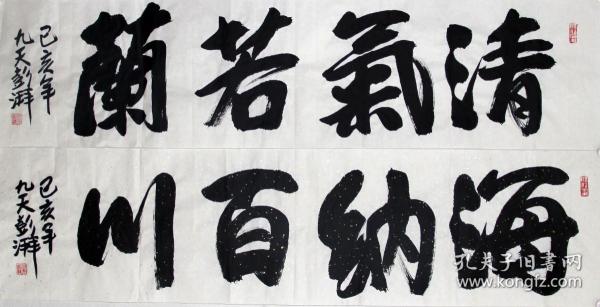 清氣若蘭
己亥年
九天彭湃
海納百川
己亥年
九天彭湃
孔夫子旧书网
kongfz.com